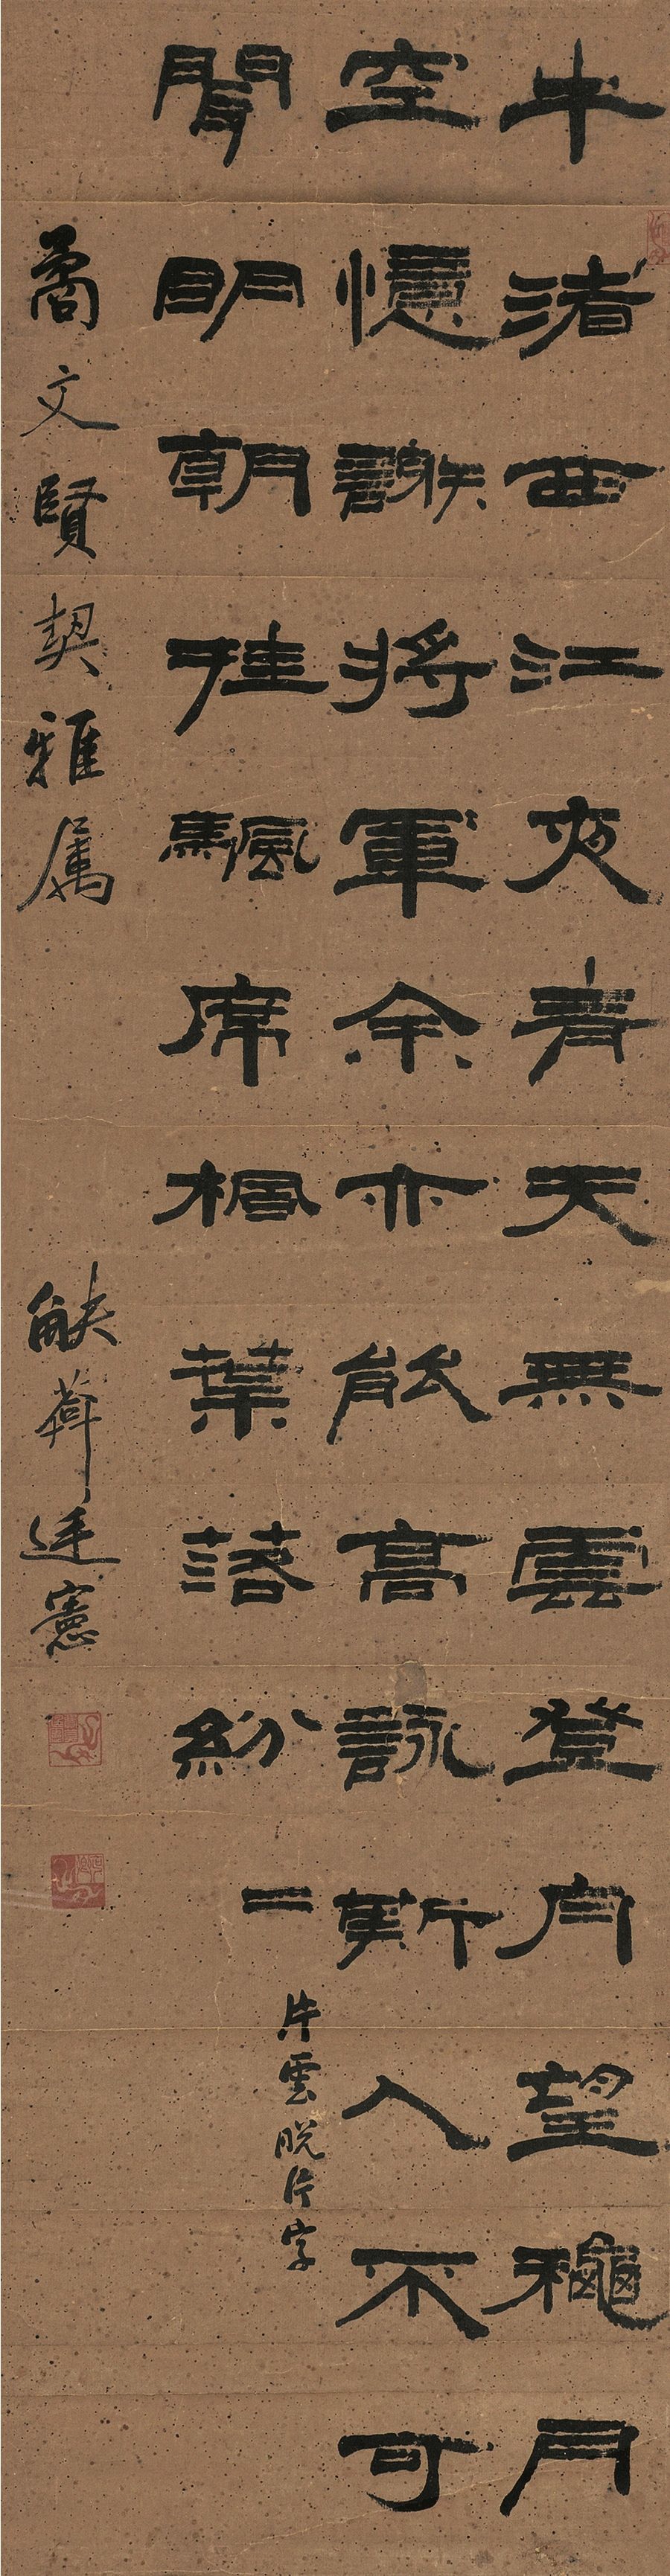 牛渚西江夜青天無雲登舟望龝月
空憶謝將軍余亦能高詠斯人不可
聞明朝挂颿席楓葉落紛二
片雲脫片字
矞文賢契雅属
廷憲